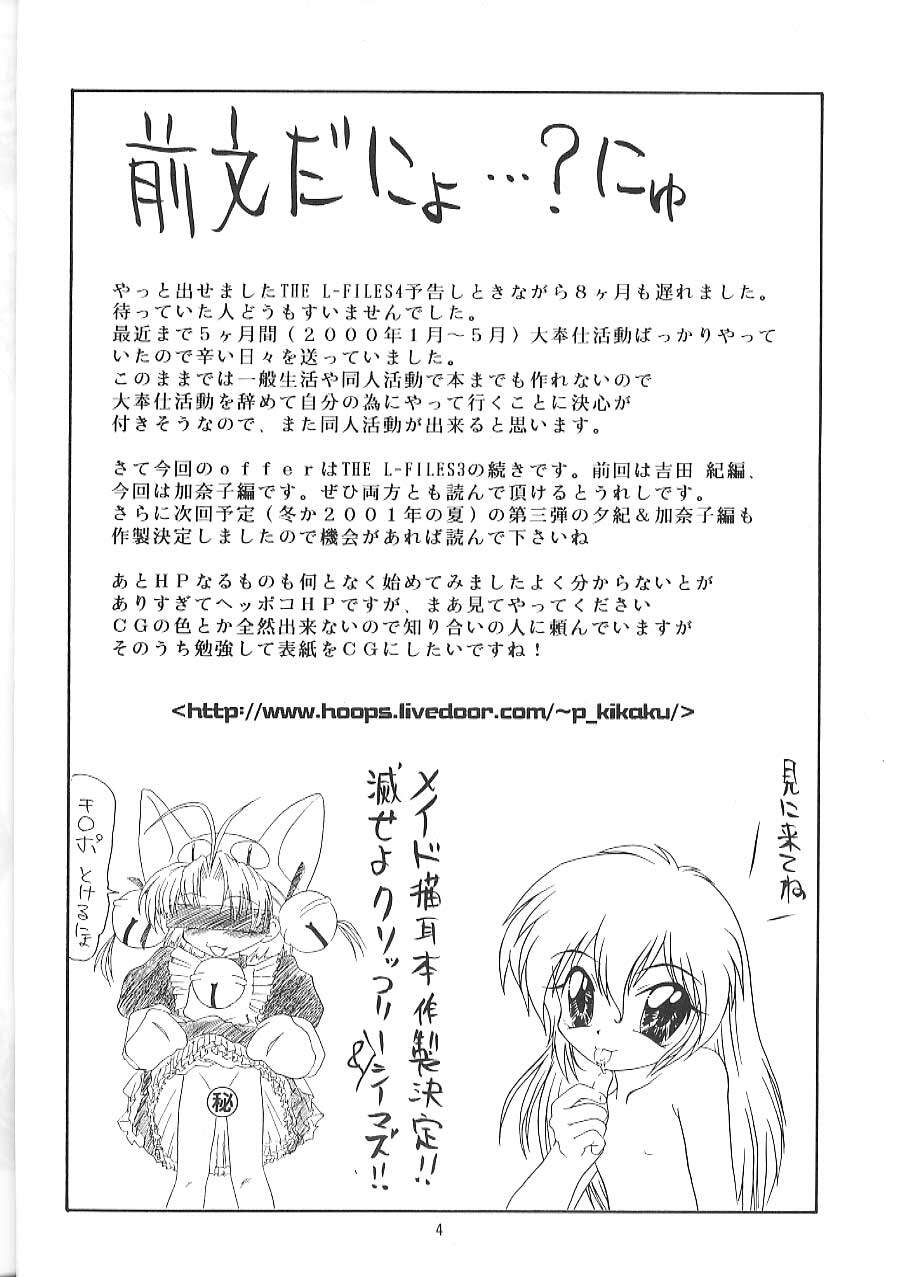 前文だにょ…?にゅ
やっと出せましたTHE L-FILES4予告しときながら8ヶ月も遅れました。
待っていた人どうもすいませんでした。
最近まで5ヶ月間(2000年1月～5月)大奉仕活動ばっかりやって
いたので辛い日々を送っていました。
このままでは一般生活や同人活動で本までも作れないので
大奉仕活動を辞めて自分の為にやって行くことに決心が
付きそうなので、また同人活動が出来ると思います。
さて今回のofferはTHE L-FILES3の続きです。前回は吉田 紀編、
今回は加奈子編です。ぜひ両方とも読んで頂けるとうれしです。
さらに次回予定(冬か2001年の夏)の第三弾の夕紀&加奈子編も
作製決定しましたので機会があれば読んで下さいね
あとHPなるものも何となく始めてみましたよく分からないとが
ありすぎてヘッポコHPですが、まあ見てやってください
CGの色とか全然出来ないので知り合いの人に頼んでいますが
そのうち勉強して表紙をCGにしたいですね!
<http://www.hoops.livedoor.com/~p_kikaku/>
見に来てね
メイド猫耳本作製決定!!
滅せよクリッコリーニイマズ!!
&
キ○ポ
とけるにょ
秘
4